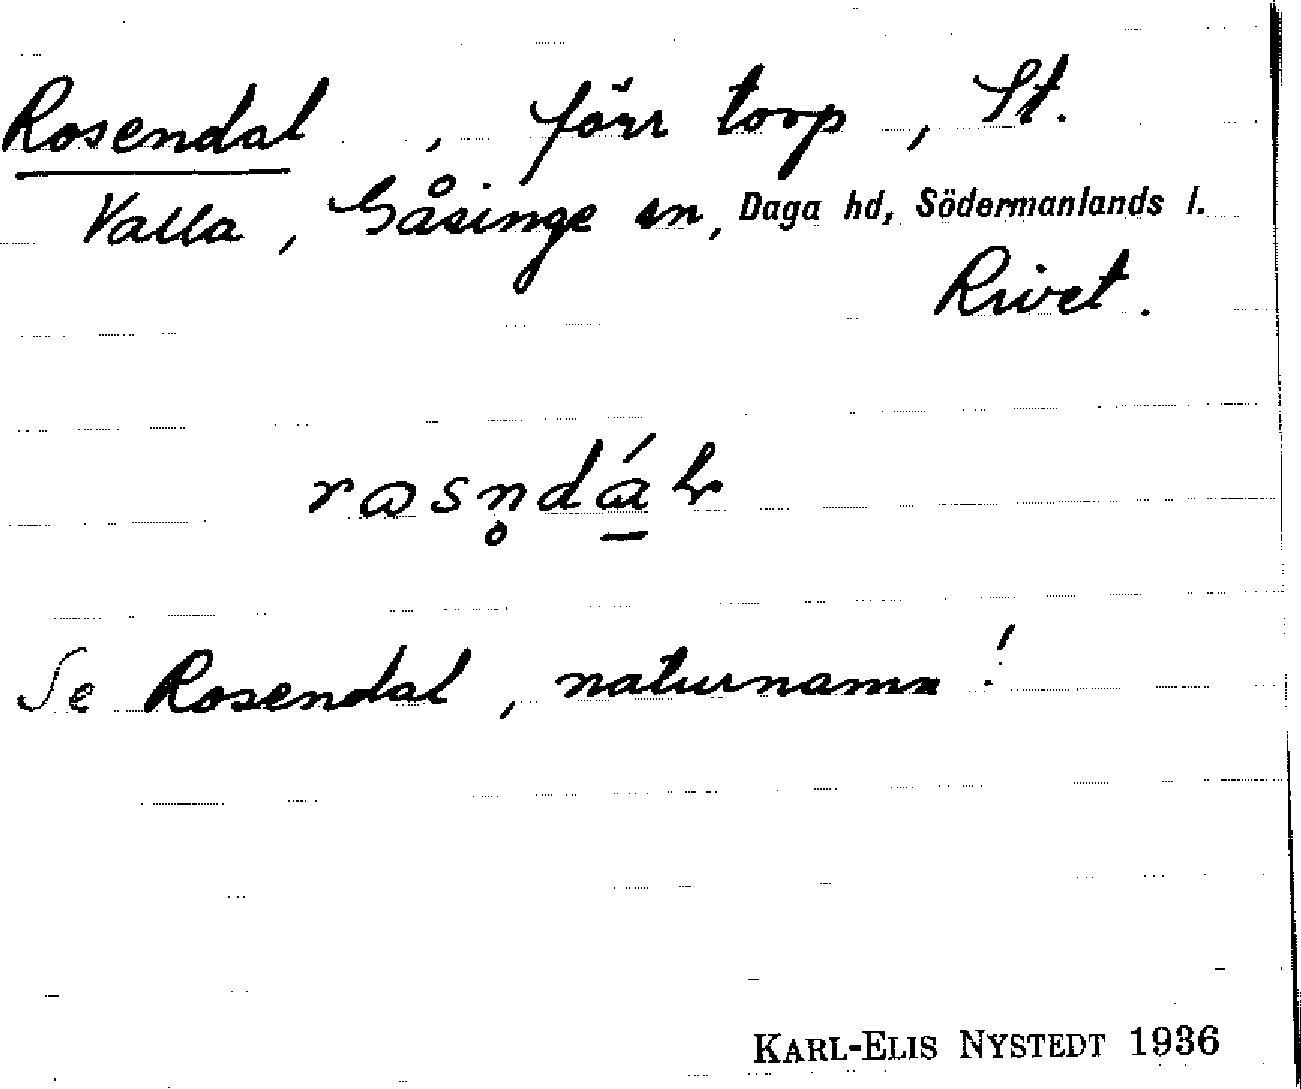 Rosendal, förr torp, St.
Valla, Gåsinge sn, Daga hd, Södermanlands l.
Rivet.
Se Rosendal, naturnamn!
KARL-ELIS NYSTEDT 1936